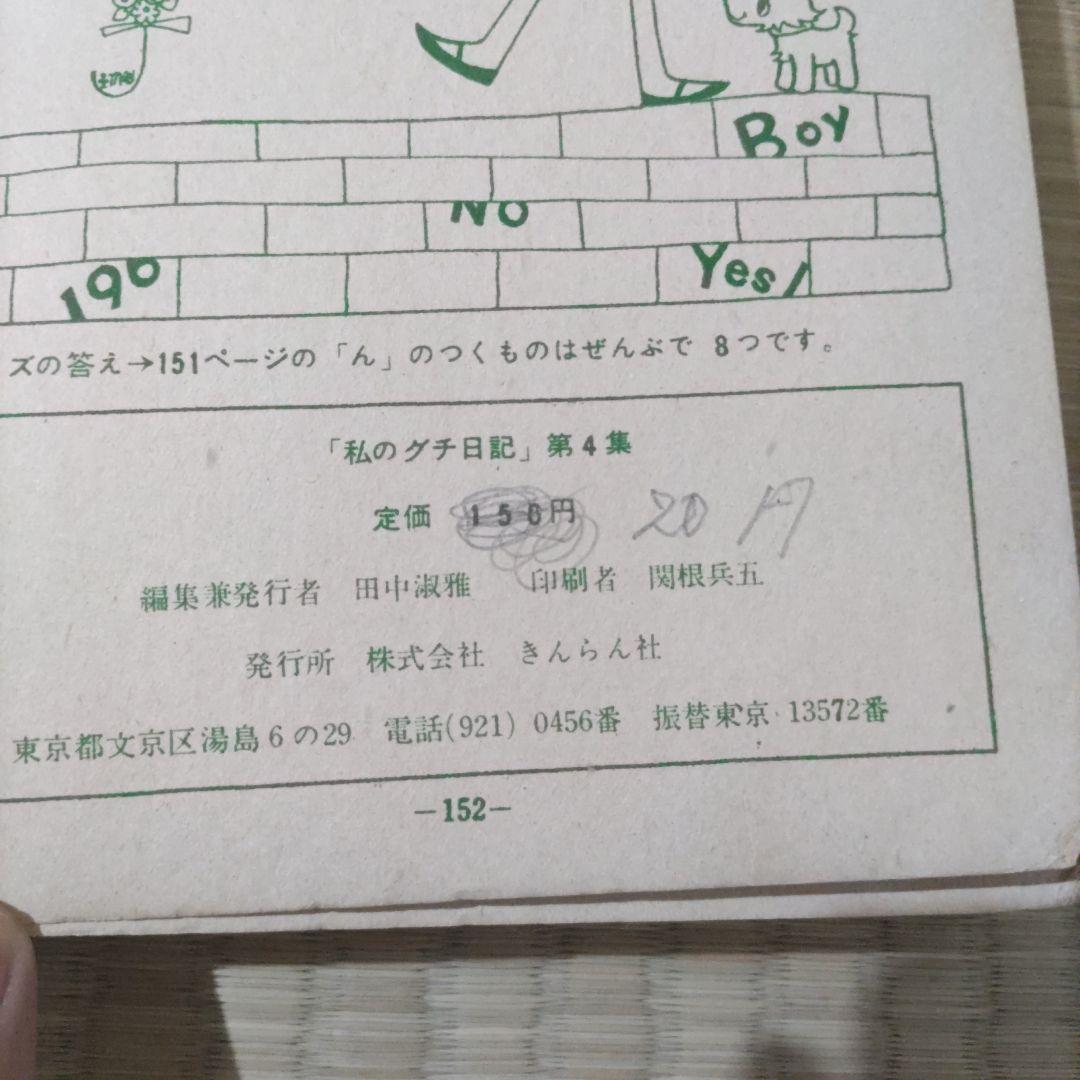 Boy
No
196
Yes!
ズの答え→151ページの「ん」のつくものはぜんぶで 8つです。
「私のグチ日記」第4集
定価 150円 20円
編集兼発行者 田中淑雅 印刷者 関根兵五
発行所 株式会社 きんらん社
東京都文京区湯島6の29 電話(921) 0456番 振替東京 13572番
―152―